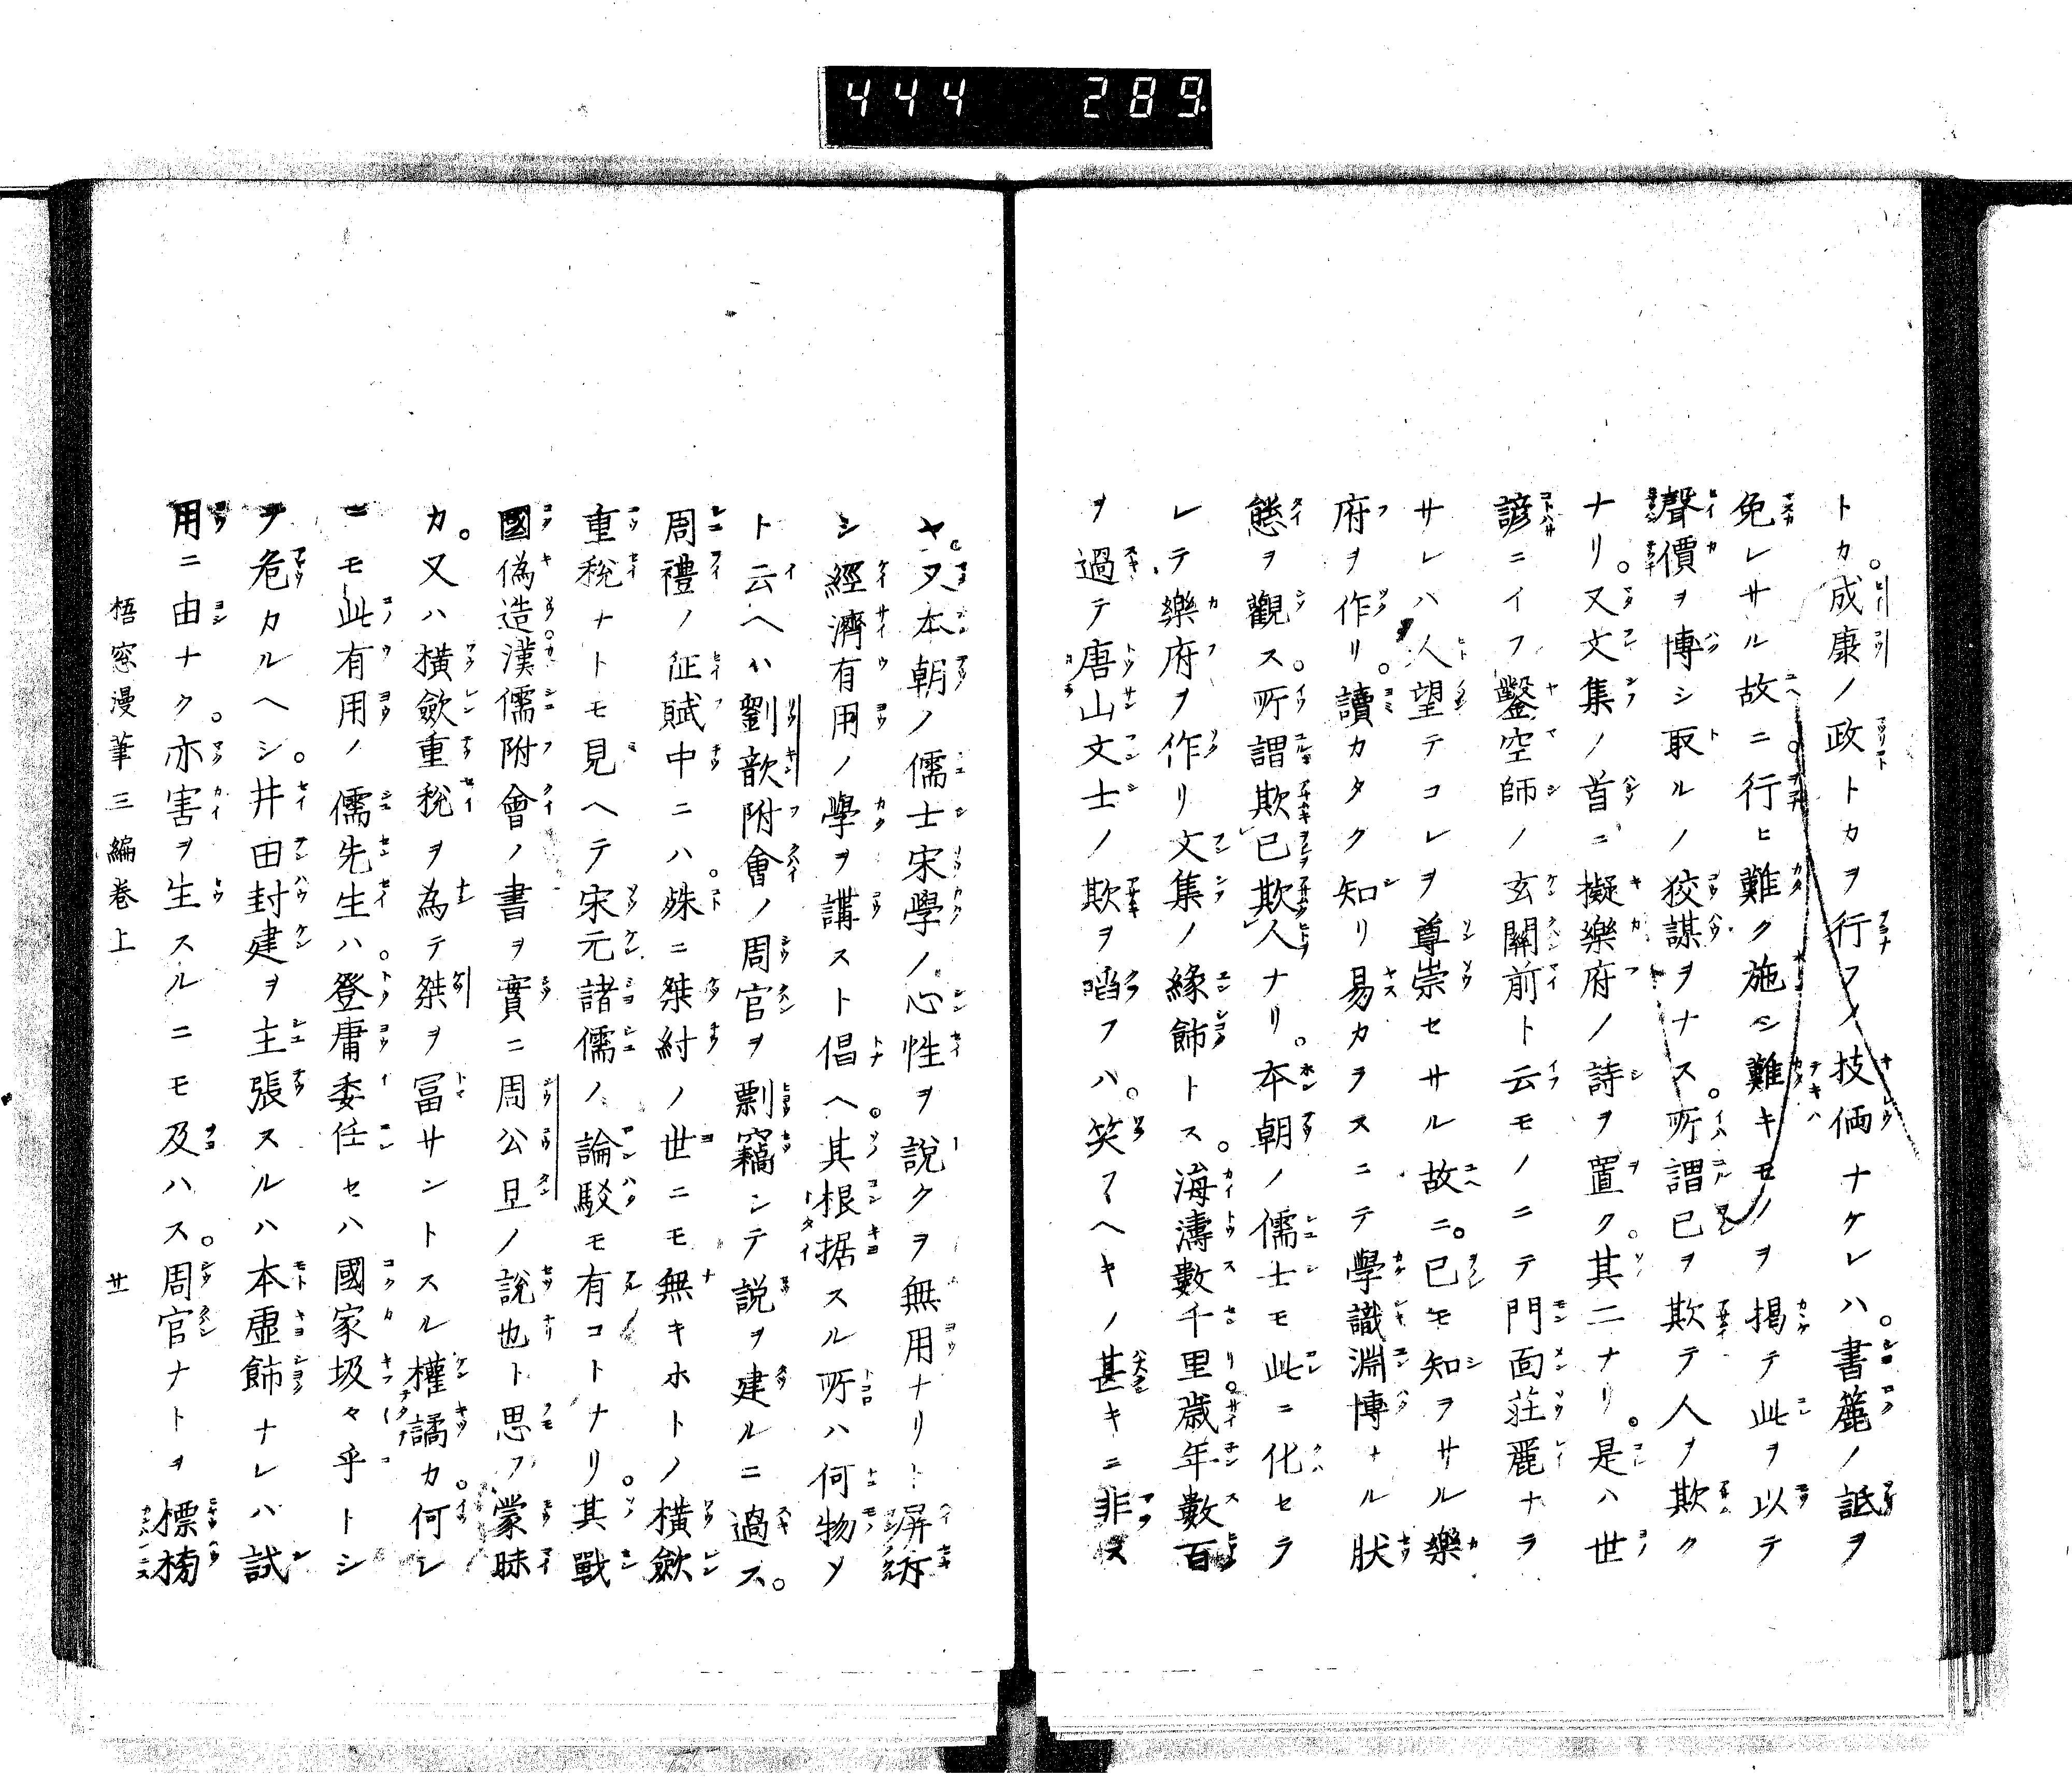 444 289
トカ。成康ノ政トカヲ行フノ技倆ナケレハ。書簏ノ詆ヲ
免レサル故ニ。行ヒ難ク施シ難キモノヲ掲テ此ヲ以テ
聲價ヲ博シ取ルノ狡謀ヲナス。所謂己ヲ欺テ人ヲ欺ク
ナリ。又文集ノ首ニ擬樂府ノ詩ヲ置ク。其二ナリ。是ハ世
諺ニイフ鑿空師ノ玄關前ト云モノニテ門面莊麗ナラ
サレハ人望テコレヲ尊崇セサル故ニ。己モ知ヲサル樂
府ヲ作リ。讀カタク知リ易カヲスニテ學識淵博ナル狀
態ヲ觀ス。所謂欺己欺人ナリ。本朝ノ儒士モ此ニ化セラ
レテ樂府ヲ作リ文集ノ緣飾トス。海濤數千里歲年數百
ヲ過テ唐山文士ノ欺ヲ啗フハ。笑フヘキノ甚キニ非ス
ヤ。又本朝ノ儒士宋學ノ心性ヲ說クヲ無用ナリト屏斥
シ經濟有用ノ學ヲ講スト倡ヘ。其根据スル所ハ何物ソ
ト云ヘハ劉歆附會ノ周官ヲ剽竊シテ說ヲ建ルニ過ス。
周禮ノ征賦中ニハ。殊ニ桀紂ノ世ニモ無キホトノ橫斂
重稅ナトモ見ヘテ宋元諸儒ノ論駁モ有コトナリ。其戰
國僞造漢儒附會ノ書ヲ實ニ周公旦ノ說也ト思フ蒙昧
カ。又ハ橫斂重稅ヲ為テ桀ヲ冨サントスル權譎カ。何レ
ニモ此有用ノ儒先生ハ。登庸委任セハ國家圾々乎トシ
テ危カルヘシ。井田封建ヲ主張スルハ本虛飾ナレハ試
用ニ由ナク。亦害ヲ生スルニモ及ハス。周官ナトヲ標榜
梧窓漫筆三編卷上 廿